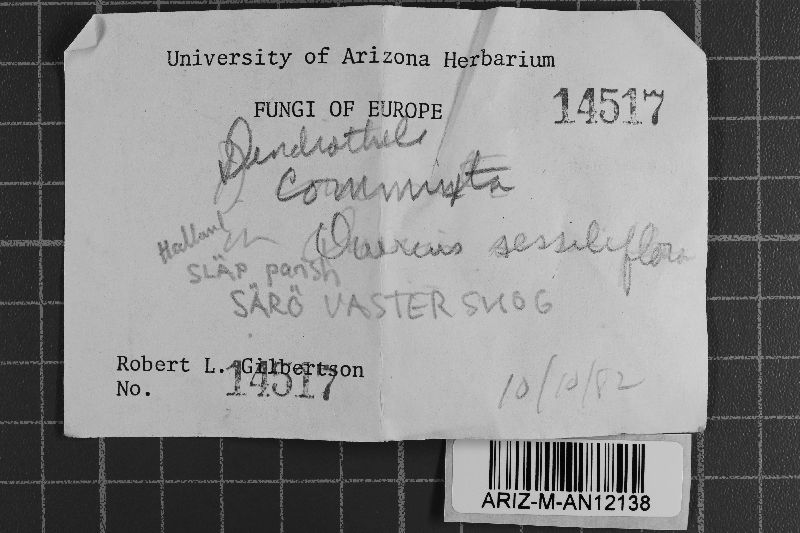 University of Arizona Herbarium
FUNGI OF EUROPE
14517
Dendrothele
commixta
Halland
on Quercus sessiliflora
SLÄP parish
SÄRÖ VASTERSKOG
Robert L. Gilbertson
No. 14517
10/10/82
ARIZ-M-AN12138